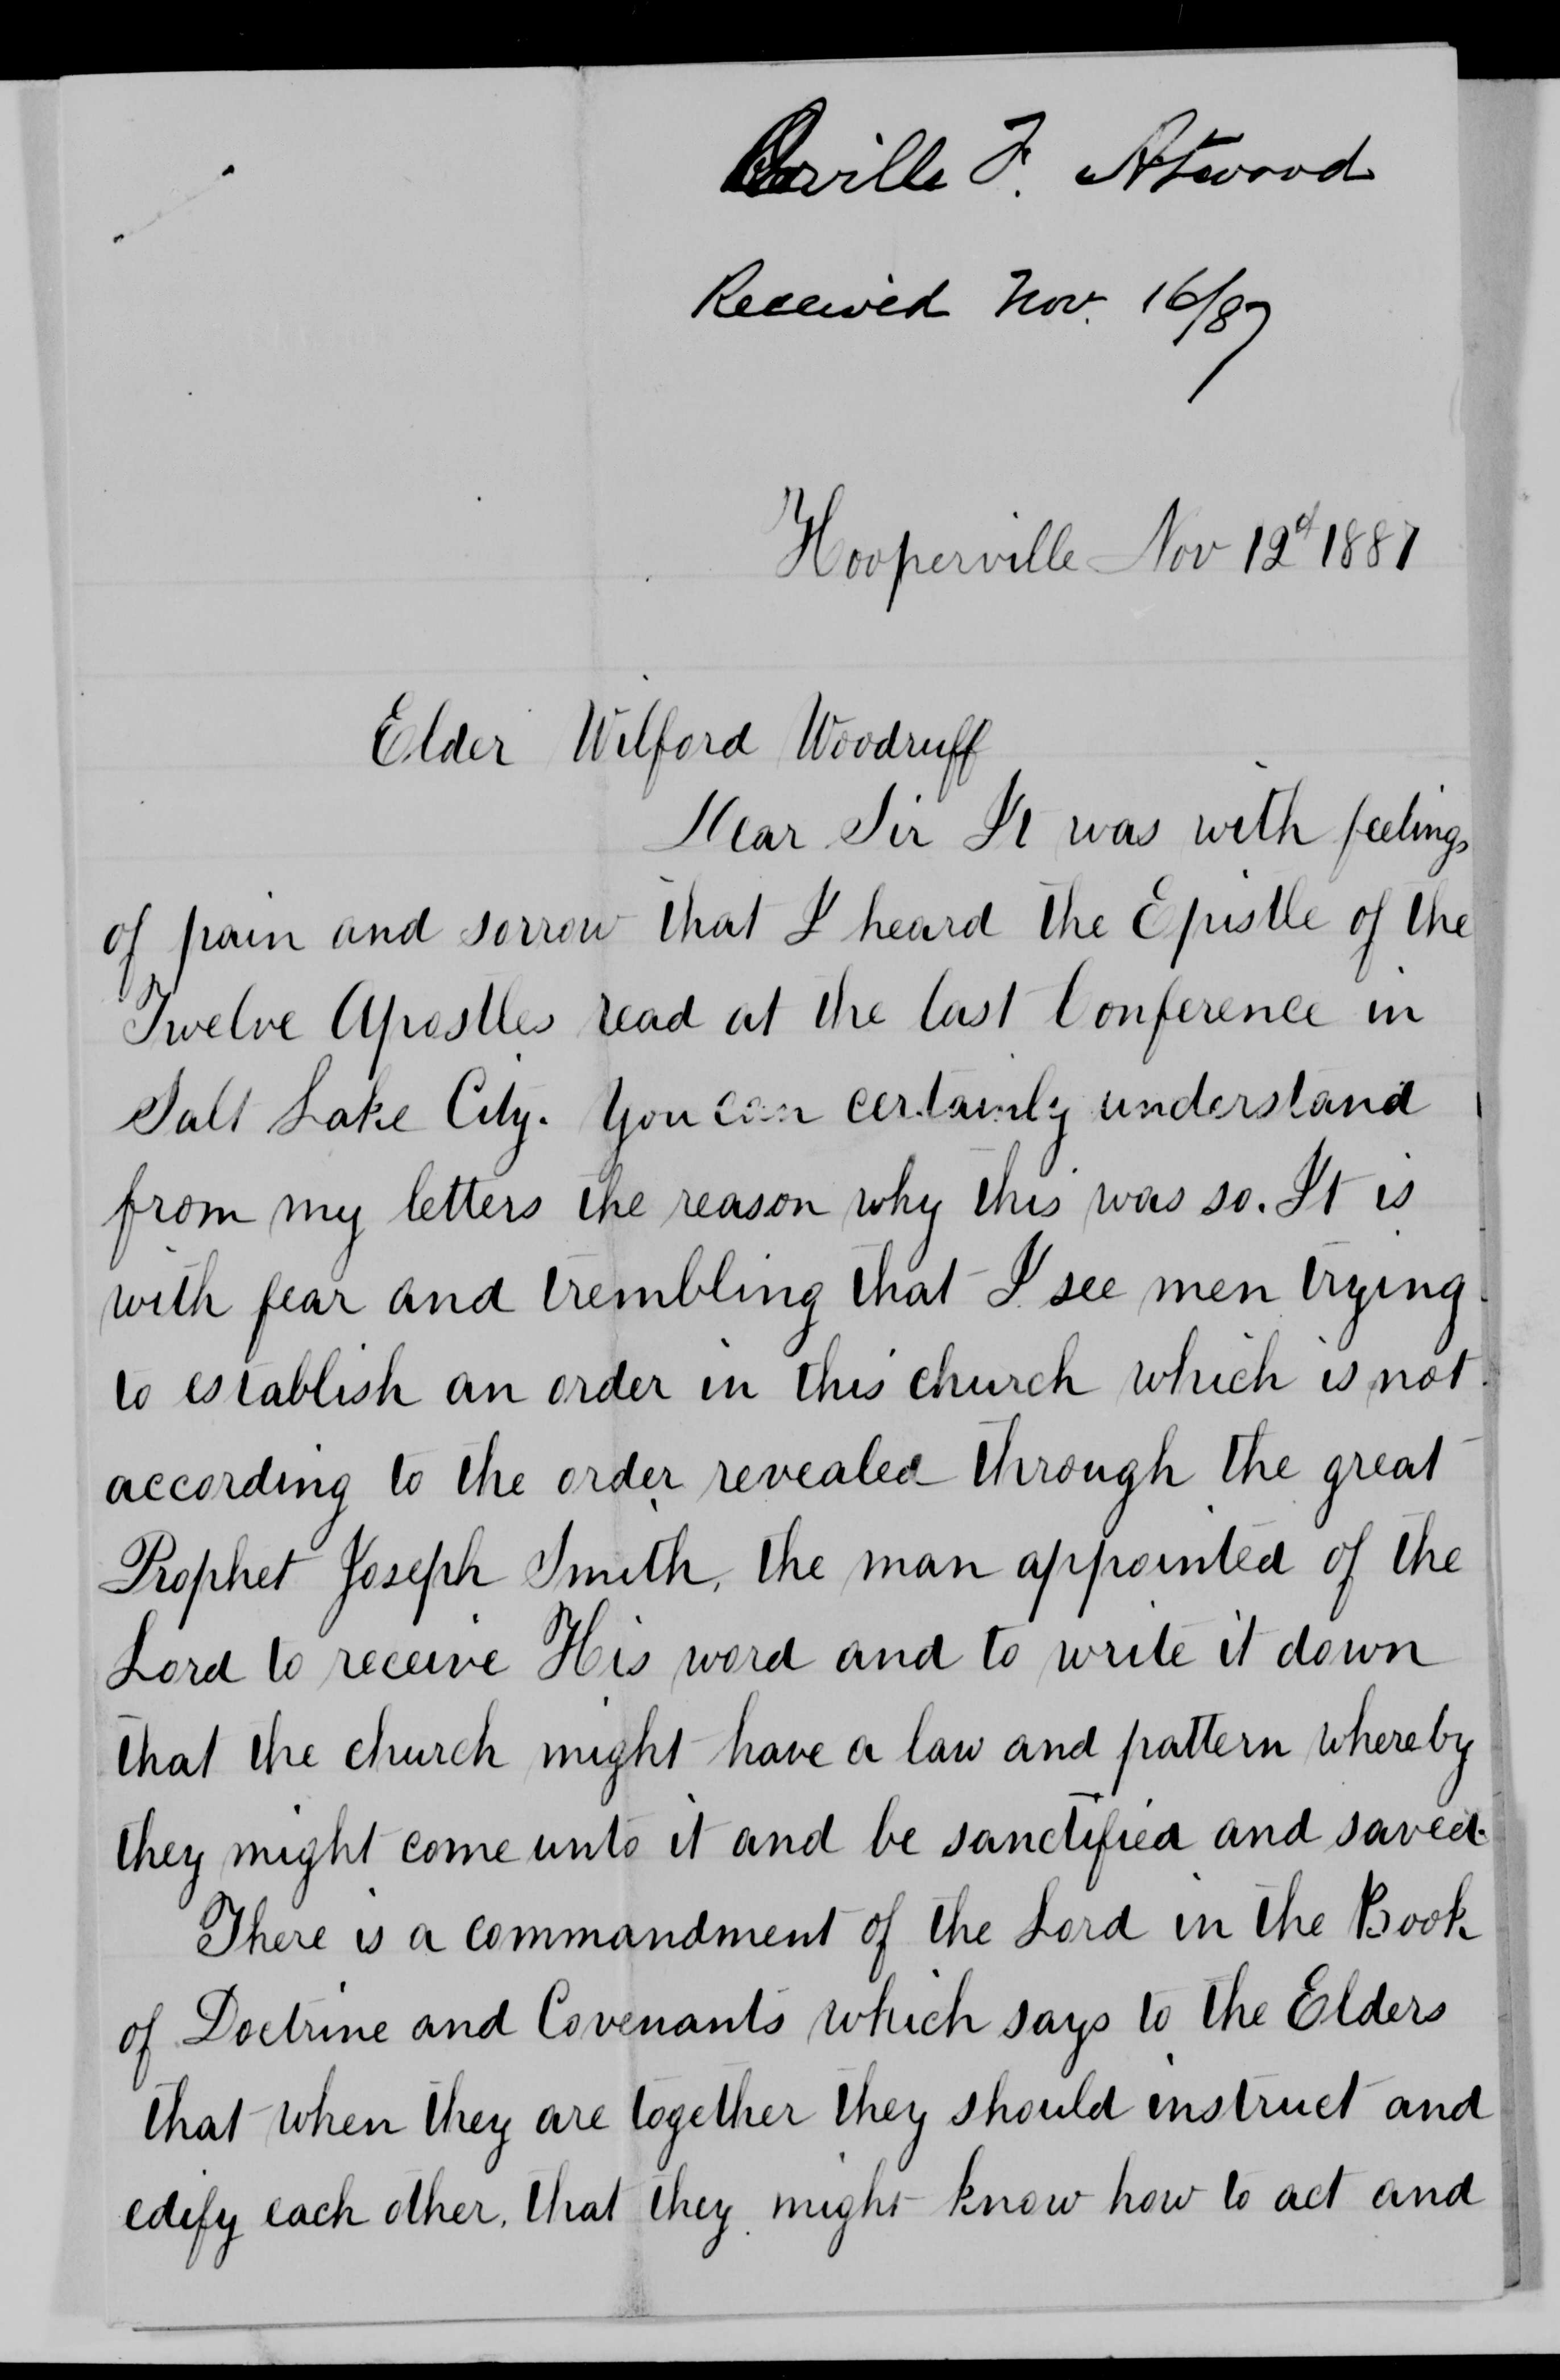 Orville F. Atwood
Received Nov. 16/87
Hooperville Nov 12d 1887
Elder Wilford Woodruff
Dear Sir It was with feelings
of pain and sorrow that I heard the Epistle of the
Twelve Apostles read at the last Conference in
Salt Lake City. You can certainly understand
from my letters the reason why this was so. It is
with fear and trembling that I see men trying
to establish an order in this church which is not
according to the order revealed through the great
Prophet Joseph Smith, the man appointed of the
Lord to receive His word and to write it down
that the church might have a law and pattern whereby
they might come unto it and be sanctified and saved.
There is a commandment of the Lord in the Book
of Doctrine and Covenants which says to the Elders
that when they are together they should instruct and
edify each other, that they might know how to act and